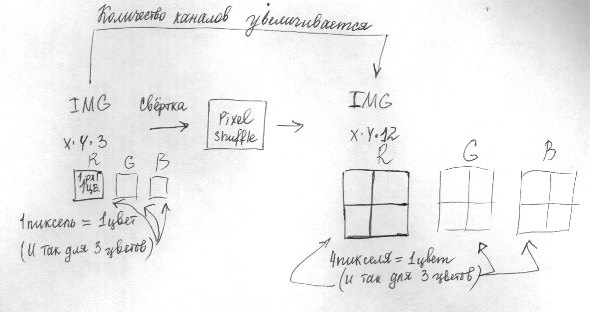 Количество каналов увеличивается
IMG
свёртка
Pixel
shuffle
IMG
X·Y·3
X·Y·12
R
G
B
R
G
B
1пиксель = 1цвет
(и так для 3 цветов)
4пикселя = 1цвет
(и так для 3 цветов)